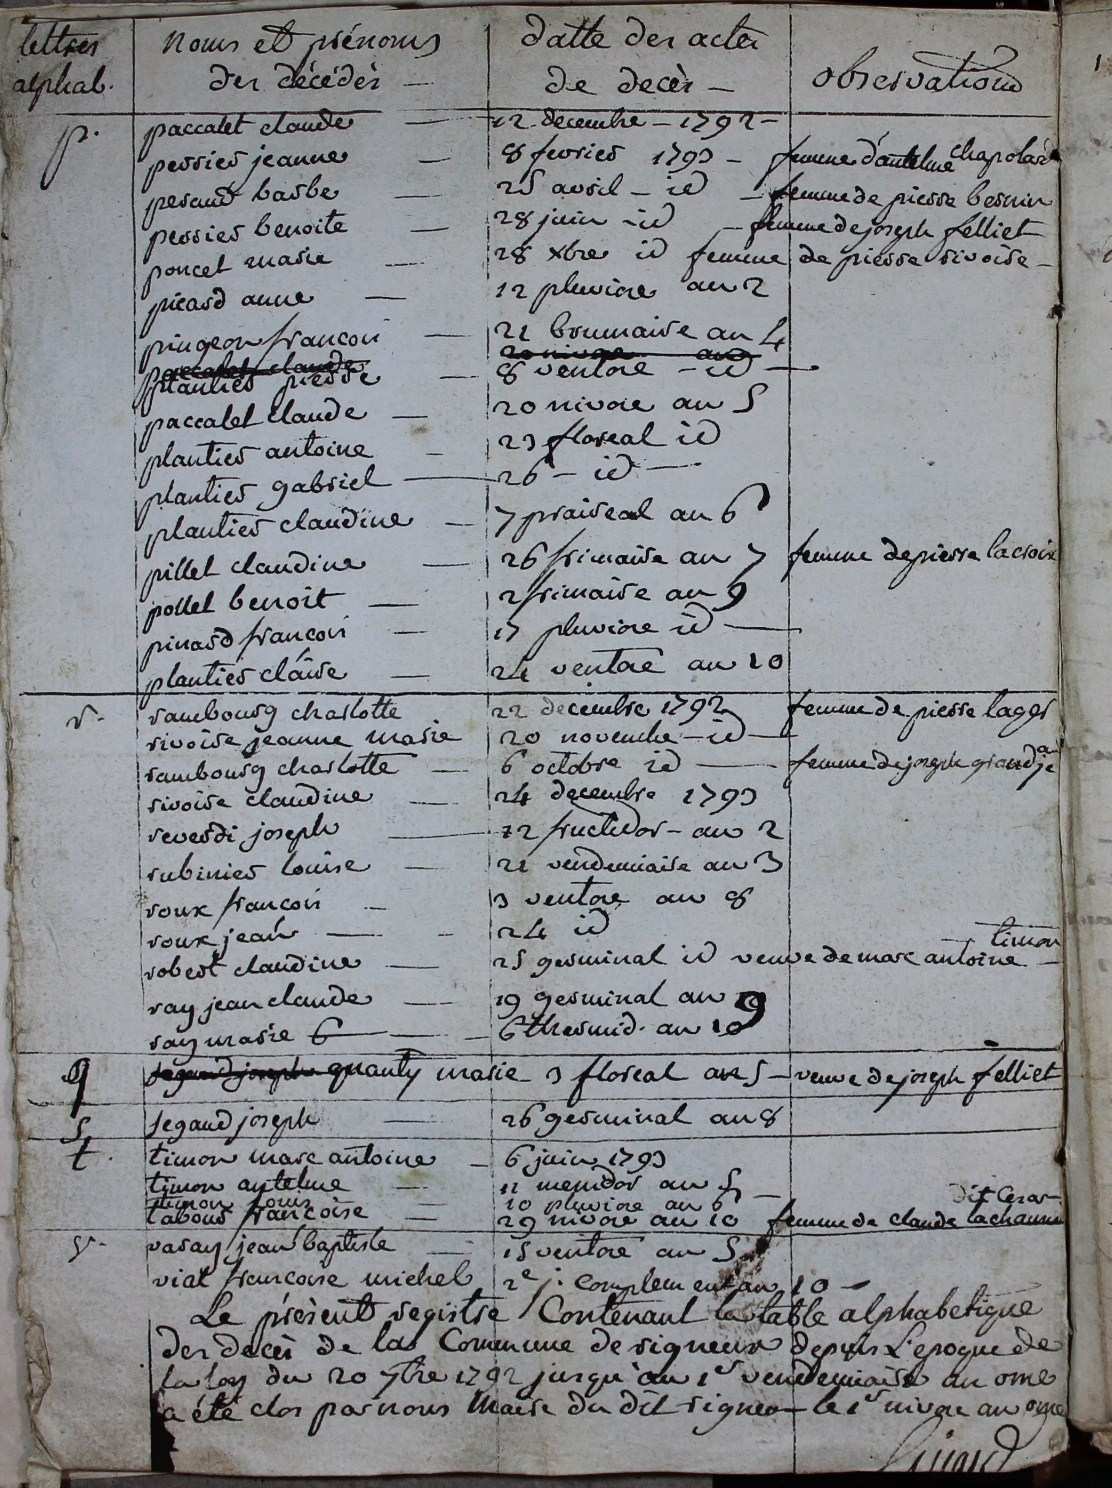 lettres noms et prénoms datte des actes
alphab. des décédés — de decès — observations
p. paccalet claude — 12 decembre — 1792 —
perrier jeanne — 8 fevrier 1793 — femme d'antelme chapolard
peraud barbe — 25 avril — id — femme de pierre bernin
perrier benoite — 28 juin — id — femme de joseph felliet
poncet marie — 28 xbre id femme de pierre rivoire —
picard anne — 12 pluviose an 2
pingeon francois — 21 brumaire an 4
paccalet claude 20 nivose an
plantier pierre — 8 ventose — id —
paccalet claude — 20 nivose an 5
plantier antoine — 23 floreal id
plantier gabriel — 26 — id —
plantier claudine — 7 praireal an 6
pillet claudine — 26 frimaire an 7 femme de pierre lacroix
pollet benoit — 2 frimaire an 9
pinard francois — 17 pluviose id —
plantier claire — 24 ventose an 10
r. rambourg charlotte 22 decembre 1792 femme de pierre lager
rivoire jeanne marie 20 novembre — id —
rambourg charlotte — 6 octobre id — femme de joseph grandje
rivoire claudine — 24 decembre 1793
reverdi joseph — 12 fructidor — an 2
rubinier louise — 21 vendemiaire an 3
roux francois — 3 ventose an 8
roux jean — 24 id
robert claudine — 25 germinal id veuve de marc antoine timon —
ray jean claude — 19 germinal an 9
ray marie 6 — 6 thermid. an 10
q segaud joseph quanty marie — 3 floreal an 5 — veuve de joseph felliet
s segaud joseph — 26 germinal an 8
t. timon marc antoine — 6 juin 1793
timon antelme — 11 messidor an 5 —
timon louis 10 pluviose an 6
tabour francoise — 29 nivose an 10 femme de claude lachaume dit Cesar
v. varay jean baptiste — 15 ventose an 5
vial francoise michel 2e j. complem ent an 10 —
Le présent registre Contenant la table alphabetique
des decès de la Commune de rigneux depuis L'epoque de
la loy du 20 7bre 1792 jusqu'au 1er vendemiaire an onze
a été clos par nous Maire du dit rigneux le 1er nivose an onze